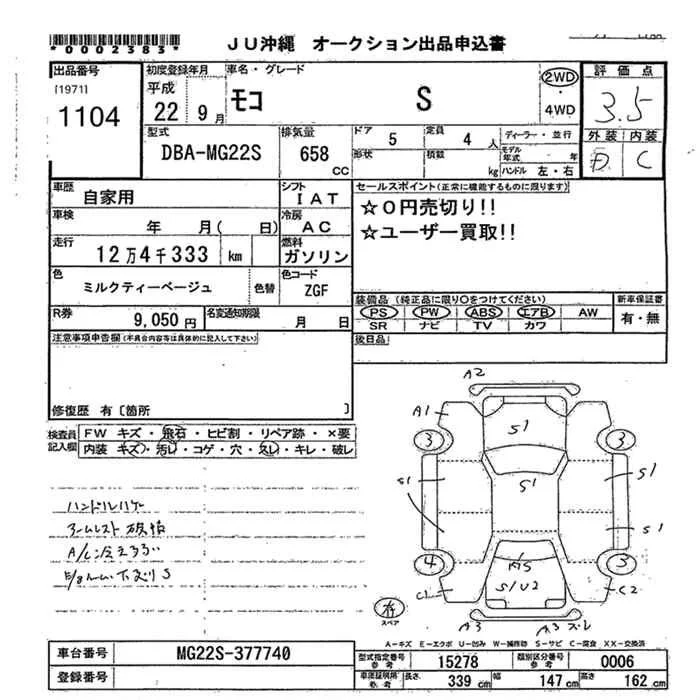 *0002383*
JU沖縄 オークション出品申込書
出品番号
[1971]
1104
初度登録年月
平成
22 9月
車名・グレード
モコ S
2WD
・
4WD
評価点
3.5
外装 内装
D C
型式
DBA-MG22S
排気量
658
CC
ドア 5
定員 4 人
形状
積数 kg
ディーラー・並行
モデル年式 年
ハンドル 左・右
車歴
自家用
シフト
IAT
車検
年 月( 日)
冷房
AC
走行
12万4千333 km
燃料
ガソリン
色
ミルクティーベージュ
色替
色コード
ZGF
R券
9,050円
名変通知期限
月 日
セールスポイント(正常に機能するものに限ります)
☆0円売切り!!
☆ユーザー買取!!
装備品 (純正品に限り○をつけてください)
PS PW ABS エアB AW
SR ナビ TV カワ
新車保証書
有・無
後日品
注意事項申告欄(不具合内容等は具体的に記入して下さい)
修復歴 有〔箇所 〕
検査員記入欄
FW キズ・飛石・ヒビ割・リペア跡・×要
内装 キズ・汚レ・コゲ・穴・スレ・キレ・破レ
ハンドルハゲ
アームレスト破損
A/C冷えよわい
A2
A1
3
S1
3
S1
S1
S1
S1
4
A/S
S/U2
3
C1
C2
A3
A3 スレ
有
スペア
A-キズ E-エクボ U-凹み W-補修跡 S-サビ C-腐食 XX-交換済
車台番号
MG22S-377740
登録番号
型式指定番号
参考
15278
類別区分番号
参考
0006
車庫証明用
参考
長さ 339 cm
幅 147 cm
高さ 162 cm